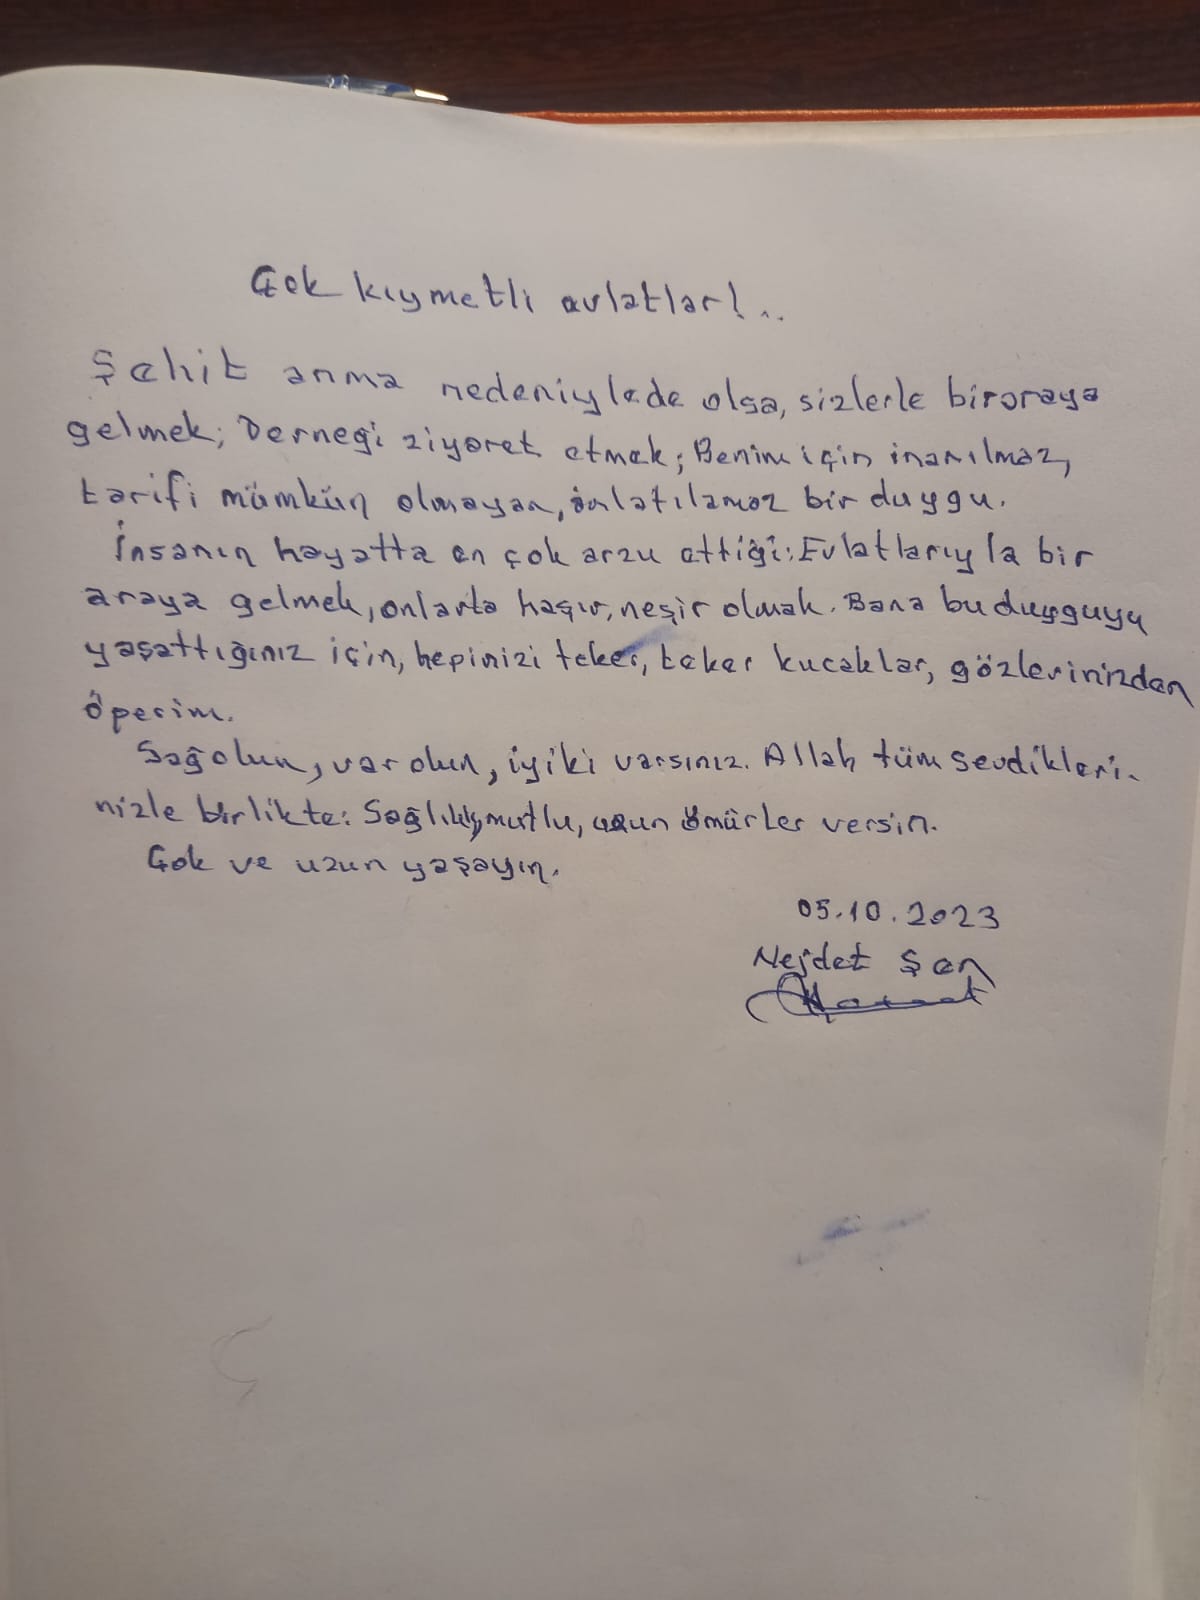 Çok kıymetli evlatlar!...
Şehit anma nedeniylede olsa, sizlerle biraraya
gelmek; Derneği ziyaret etmek; Benim için inanılmaz,
tarifi mümkün olmayan, anlatılamaz bir duygu.
İnsanın hayatta en çok arzu ettiği: Evlatlarıyla bir
araya gelmek, onlarla haşır, neşir olmak. Bana bu duyguyu
yaşattığınız için, hepinizi teker, teker kucaklar, gözlerinizden
öperim.
Sağolun, varolun, iyiki varsınız. Allah tüm sevdikleri-
nizle birlikte: Sağlıklı, mutlu, uzun ömürler versin.
Çok ve uzun yaşayın.
05.10.2023
Nejdet Şen